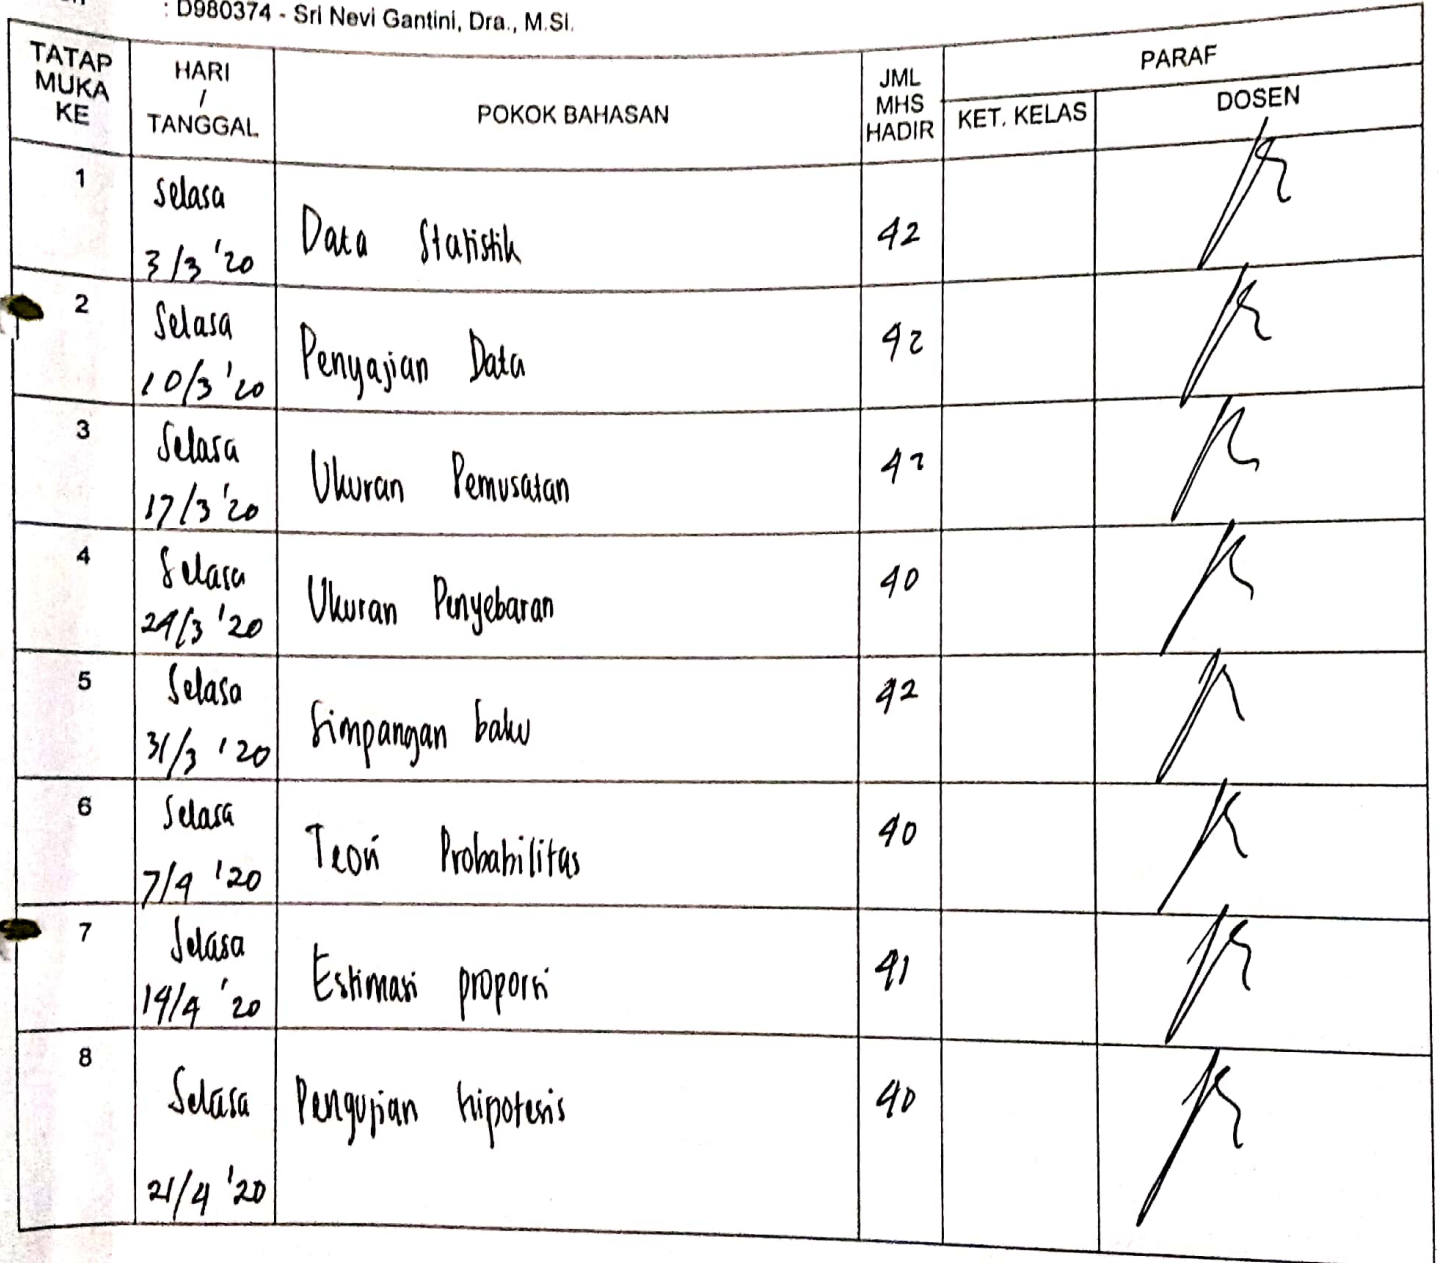 : D980374 - Sri Nevi Gantini, Dra., M.Si.
TATAP MUKA KE
HARI / TANGGAL
POKOK BAHASAN
JML MHS HADIR
PARAF
KET. KELAS
DOSEN
1 Selasa 3/3 '20 Data Statistik 42
2 Selasa 10/3 '20 Penyajian Data 42
3 Selasa 17/3 '20 Ukuran Pemusatan 42
4 Selasa 24/3 '20 Ukuran Penyebaran 40
5 Selasa 31/3 '20 Simpangan baku 42
6 Selasa 7/4 '20 Teori Probabilitas 40
7 Selasa 14/4 '20 Estimasi proporsi 41
8 Selasa 21/4 '20 Pengujian hipotesis 40